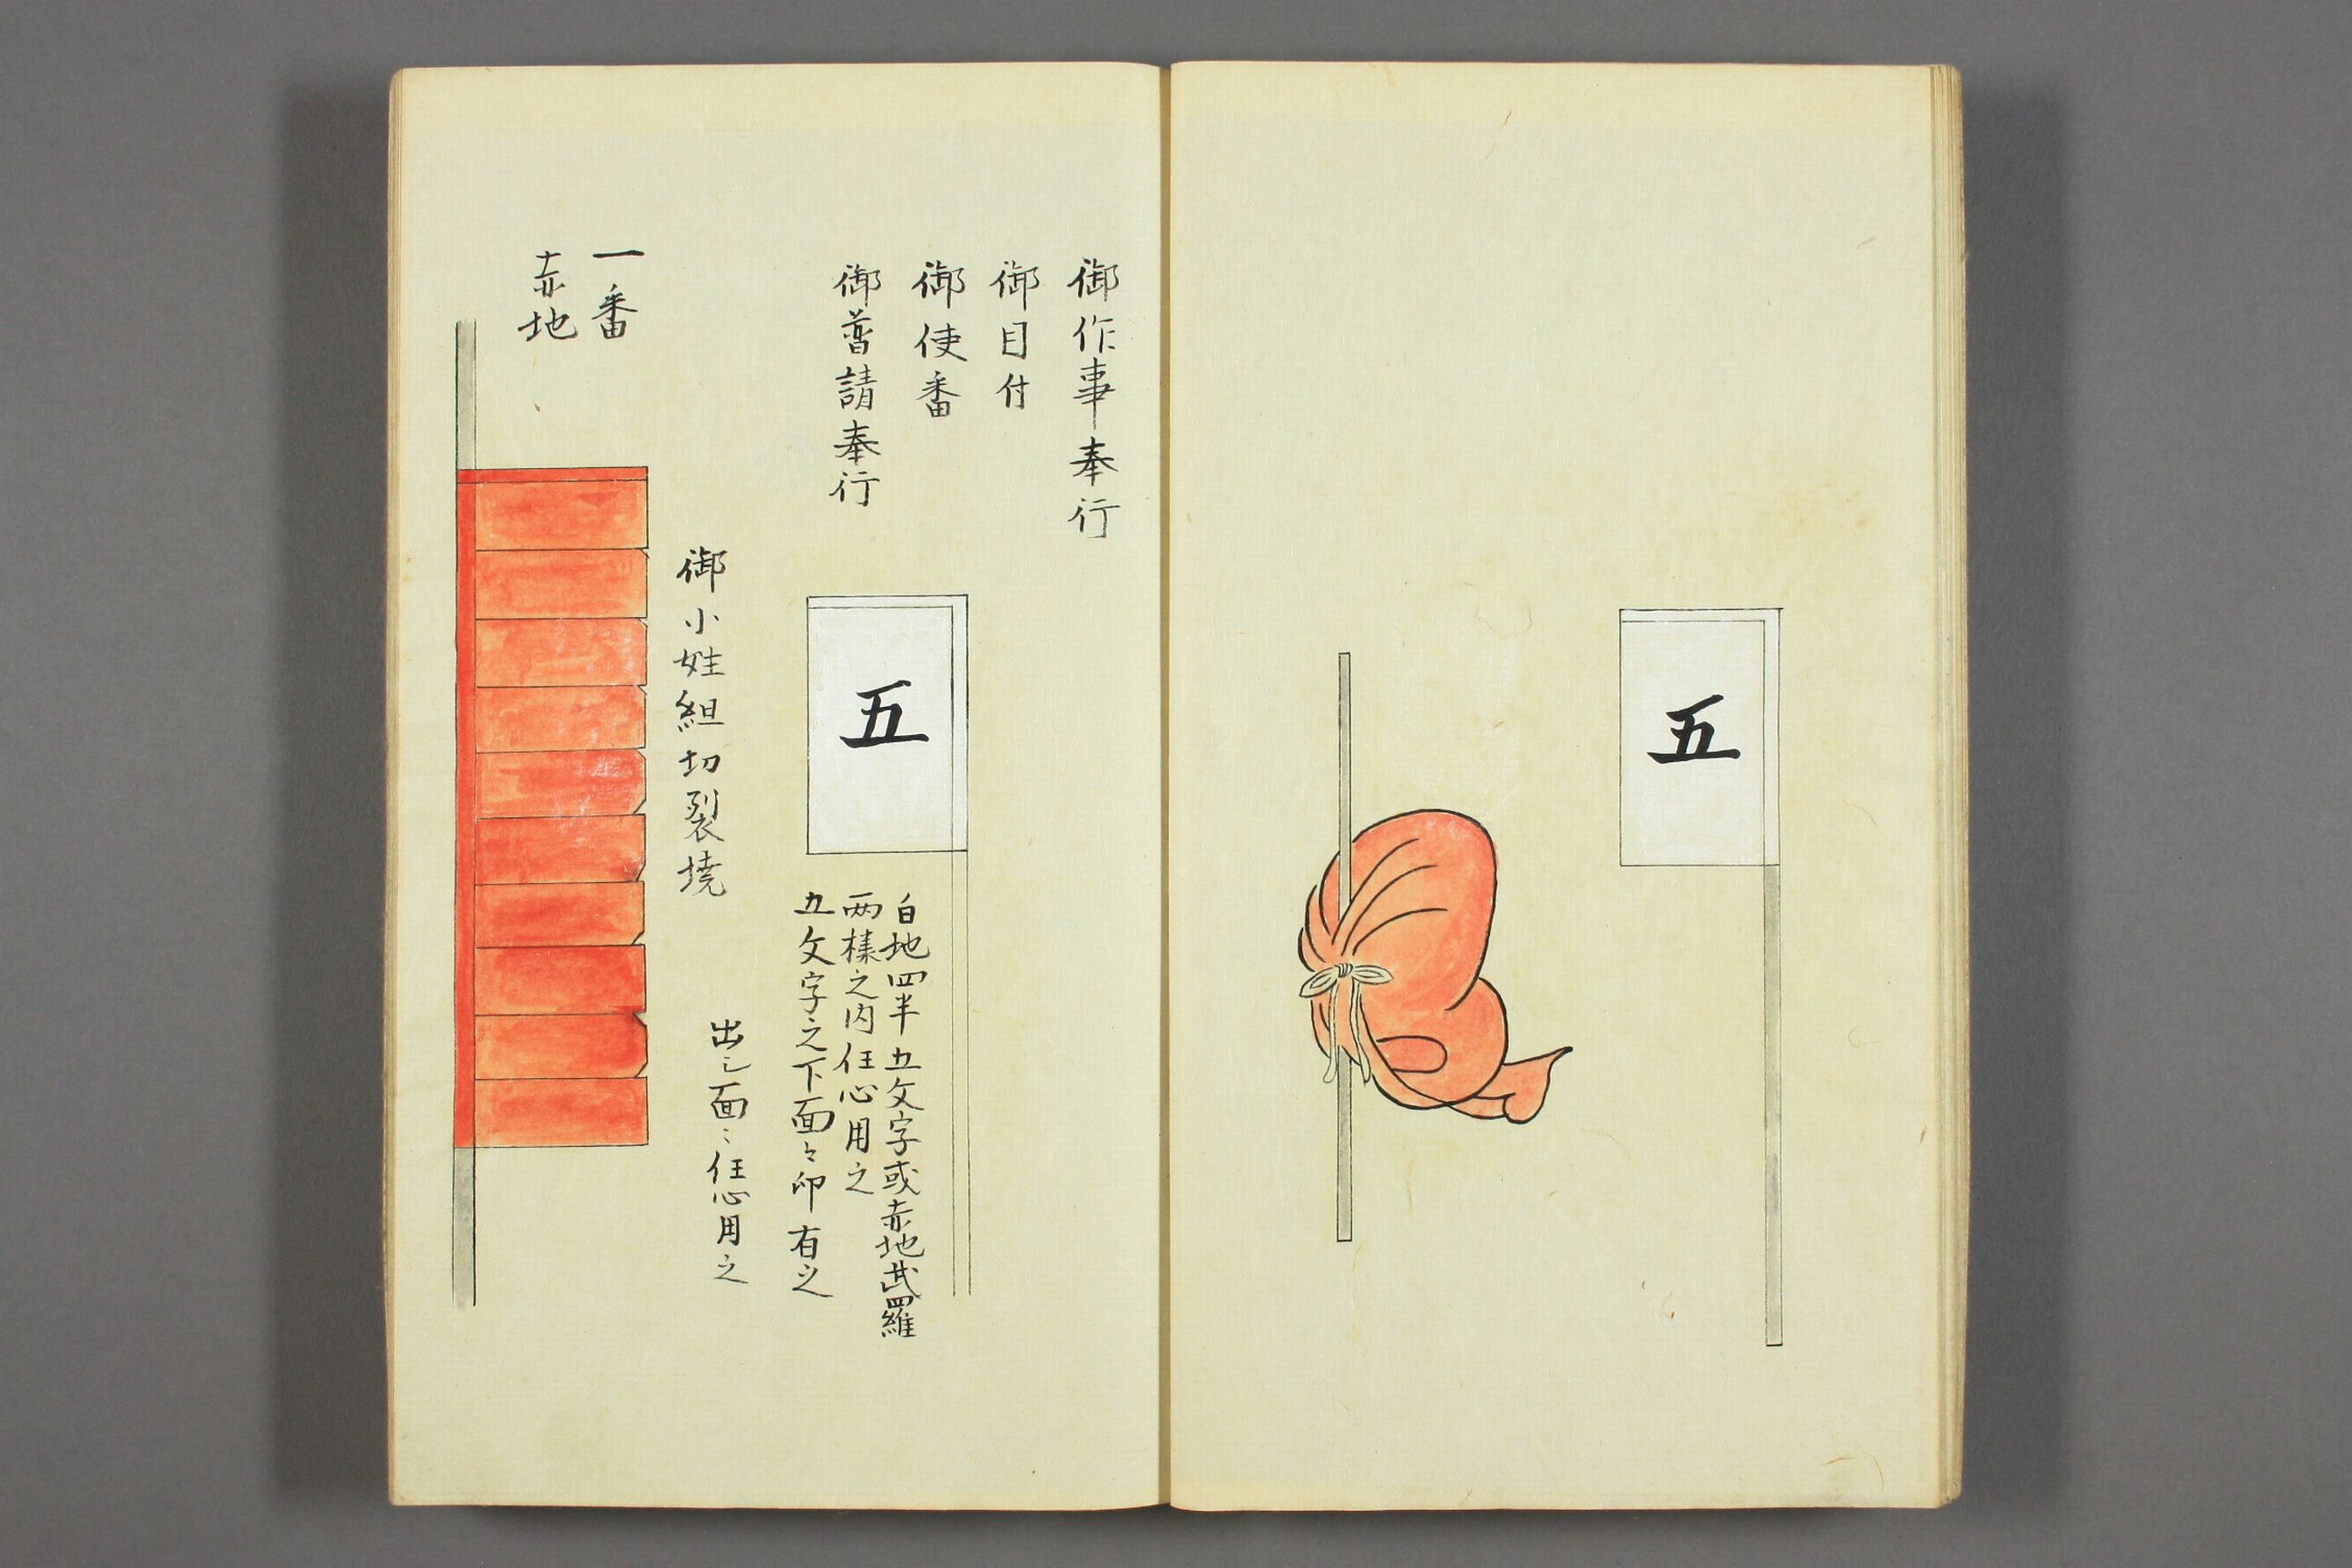 五
御作事奉行
御目付
御使番
御普請奉行
五
白地四半五文字或赤地武羅
两様之内任心用之
五文字之下面々印有之
御小姓組切裂撓
出し面々任心用之
一番
赤地